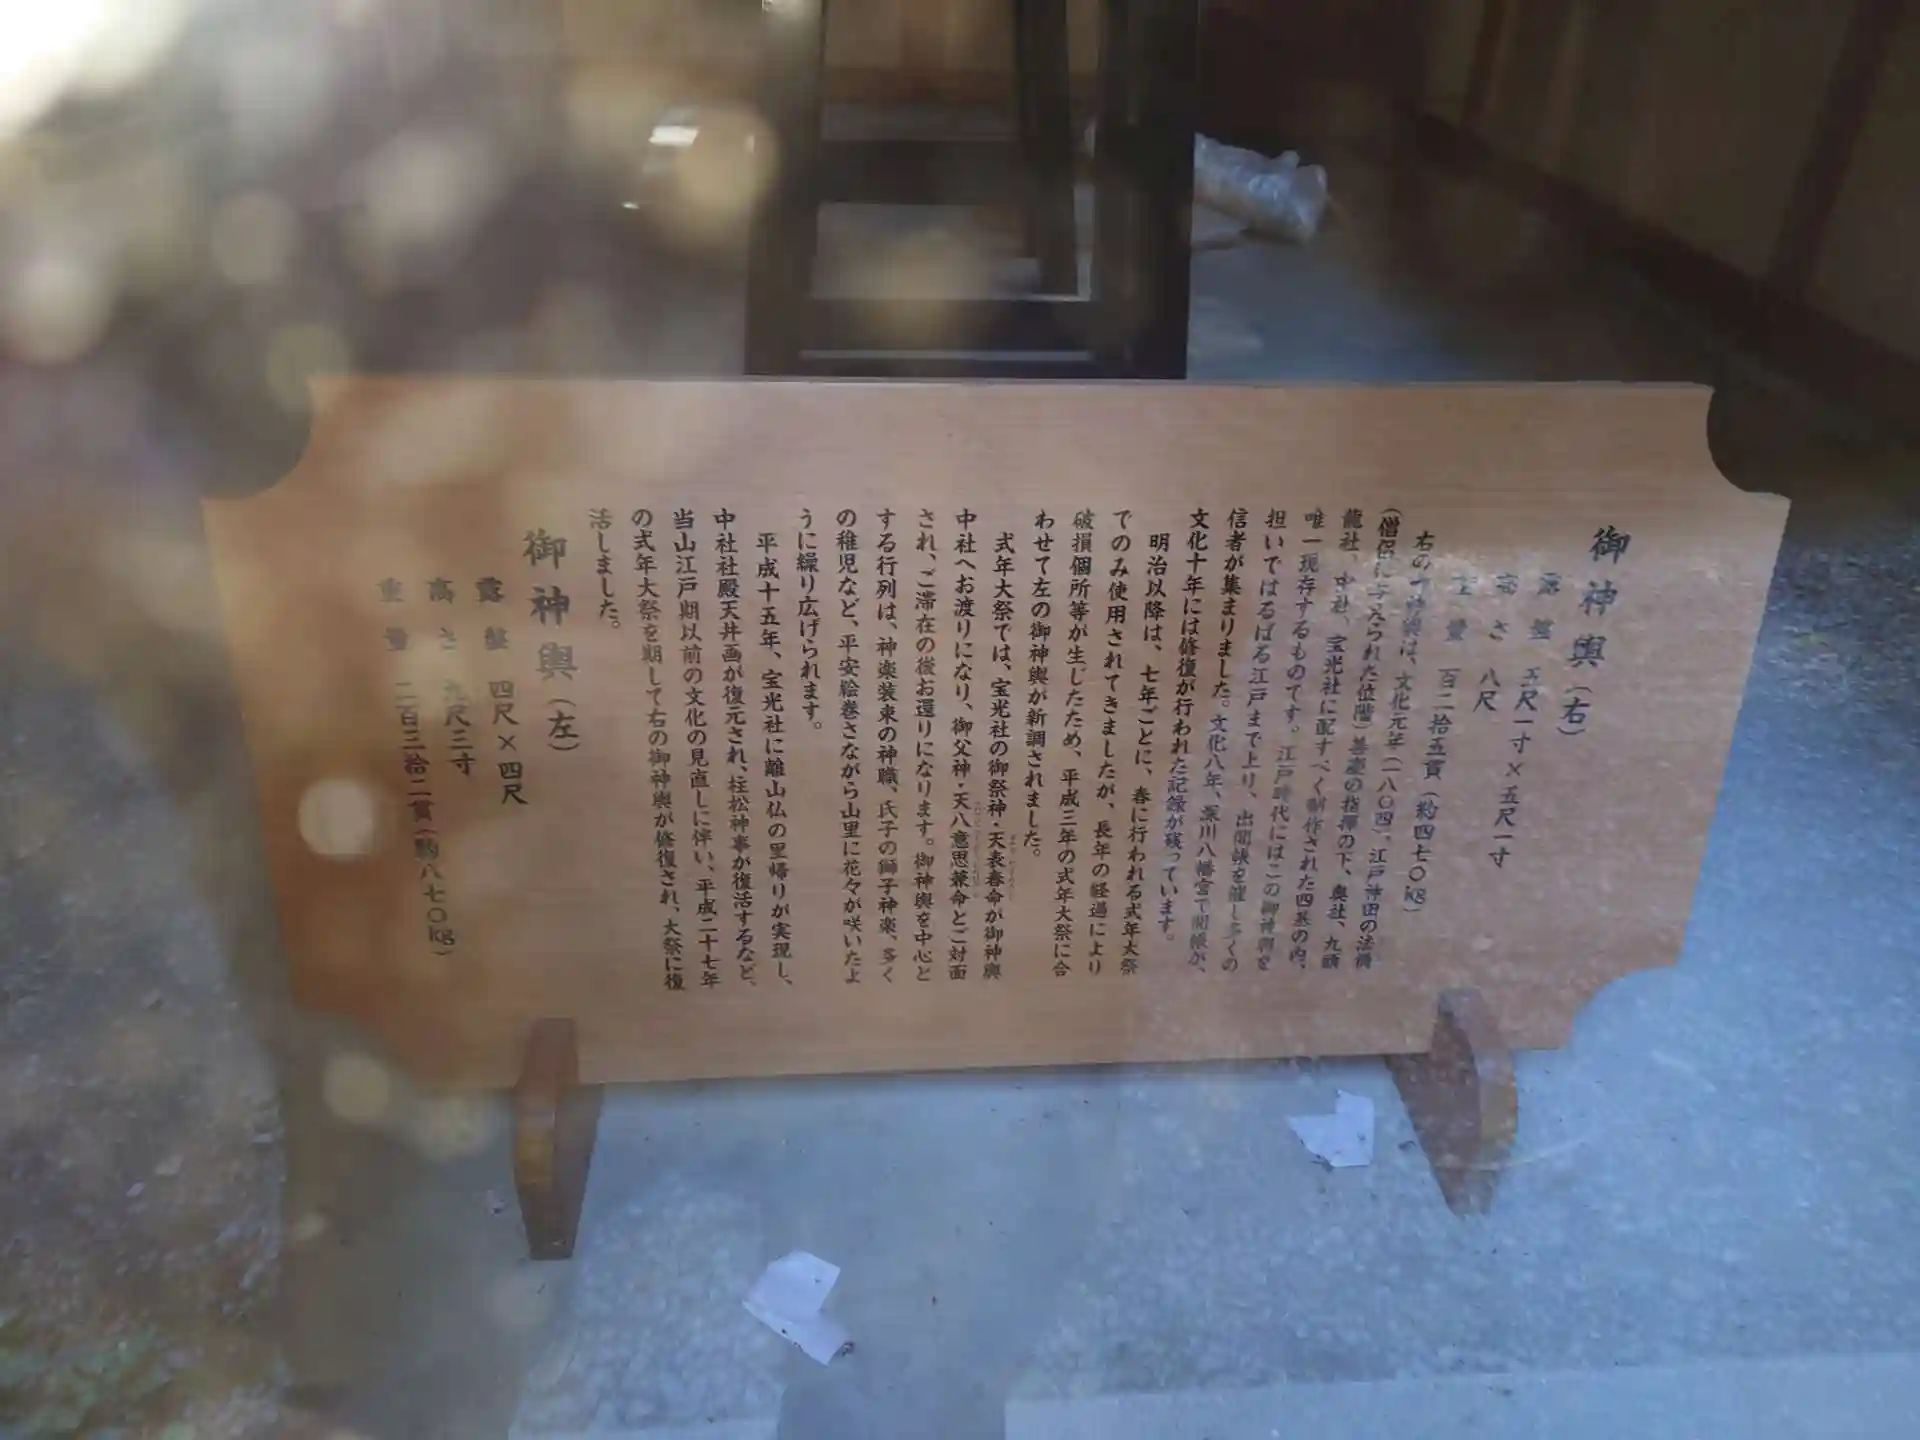 御神輿（右）
露盤　五尺一寸×五尺一寸
高さ　八尺
重量　百二拾五貫（約四七〇kg）
右の御神輿は、文化元年（一八〇四）、江戸神田の法橋
（僧侶に与えられた位階）善慶の指揮の下、奥社、九頭
龍社、中社、宝光社に配すべく制作された四基の内、
唯一現存するものです。江戸時代にはこの御神輿を
担いではるばる江戸まで上り、出開帳を催し多くの
信者が集まりました。文化八年、深川八幡宮で開帳が、
文化十年には修復が行われた記録が残っています。
明治以降は、七年ごとに、春に行われる式年大祭
でのみ使用されてきましたが、長年の経過により
破損個所等が生じたため、平成三年の式年大祭に合
わせて左の御神輿が新調されました。
式年大祭では、宝光社の御祭神・天表春命が御神輿
中社へお渡りになり、御父神・天八意思兼命とご対面
され、ご滞在の後お還りになります。御神輿を中心と
する行列は、神楽装束の神職、氏子の獅子神楽、多く
の稚児など、平安絵巻さながら山里に花々が咲いたよ
うに繰り広げられます。
平成十五年、宝光社に離山仏の里帰りが実現し、
中社社殿天井画が復元され、柱松神事が復活するなど、
当山江戸期以前の文化の見直しに伴い、平成二十七年
の式年大祭を期して右の御神輿が修復され、大祭に復
活しました。
御神輿（左）
露盤　四尺×四尺
高さ　九尺三寸
重量　二百三拾二貫（約八七〇kg）